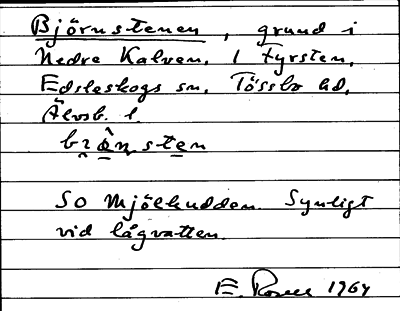 Björnstenen, grund i
Nedre Kalven. 1 fyrsten,
Edsleskogs sn, Tössbo hd,
Älvsb. l.
SO Mjölkudden. Synligt
vid lågvatten.
E. 1964